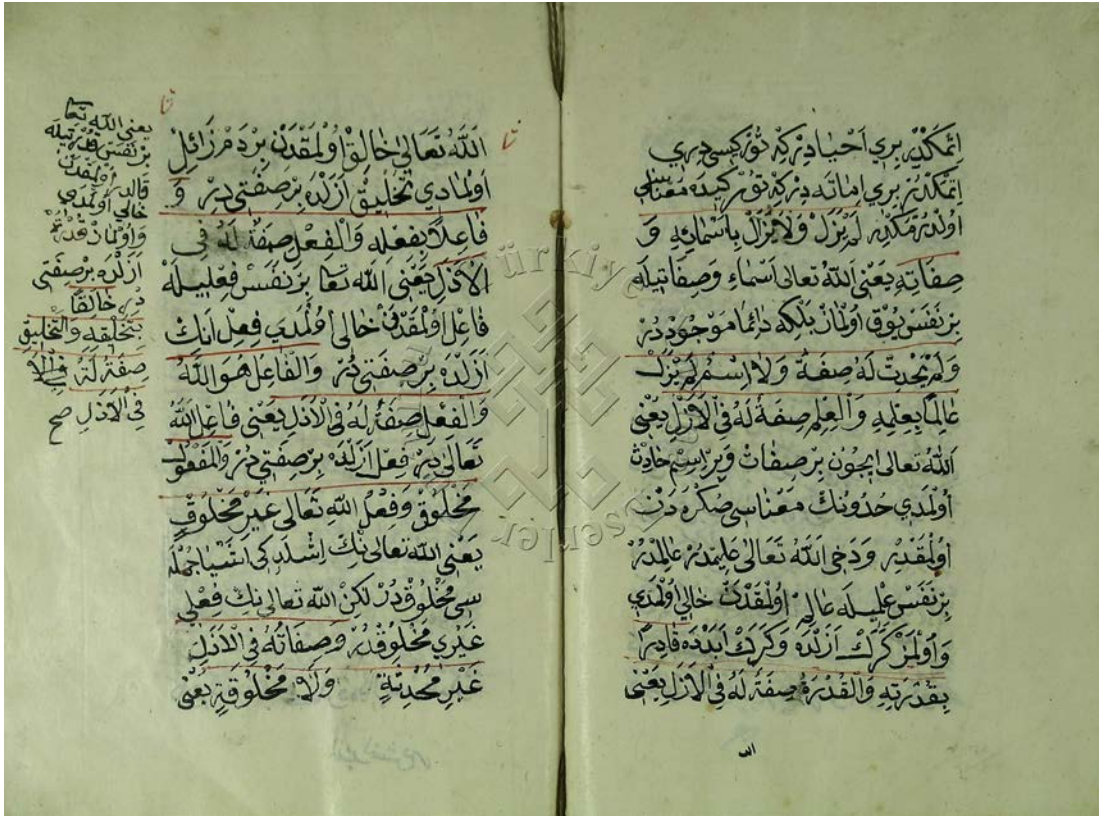 اِتْمَكْدِرْ بِرِي اَحْيَادِرْ كِه تُورْ كِيسِي دِرِي
اِتْمَكْدُرْ بِرِي اِمَاتَه دِرْ كِه تُورْ كِيدَه مَعْنَاسِي
اُولْدُرْمَكْدِرْ لَمْ يَزَلْ وَلَا يَزَالُ بِاَسْمَائِهِ وَ
صِفَاتِهِ يَعْنِي اَللّٰهُ تَعَالٰى اَسْمَاءِ وَصِفَاتِيلَه
بِرْ نَفَسْ يُوقْ اُولْمَازْ بَلْكِه دَائِمَا مَوْجُودْدُرْ
وَلَمْ يَحْدُثْ لَهُ صِفَةٌ وَلَا اِسْمٌ لَمْ يَزَلْ
عَالِمًا بِعِلْمِهِ وَالْعِلْمُ صِفَةٌ لَهُ فِي الْاَزَلِ يَعْنِي
اَللّٰهُ تَعَالٰى اِيچُونْ بِرْ صِفَاتْ وَبِرْ اِسْمْ حَادِثْ
اُولْمَدِي حُدُوثْكْ مَعْنَاسِي صُكْرَه دَنْ
اُولْمَقْدِرْ وَدَخِي اَللّٰهُ تَعَالٰى عَلِيمْدُرْ عَالِمْدُرْ
بِرْ نَفَسْ عِلْمِيلَه عَالِمْ اُولْمَقْدَنْ خَالِي اُولْمَدِي
وَاُولْمَزْ كَرَكْ اَزَلْدَه وَكَرَكْ اَبَدْدَه قَادِرًا
بِقُدْرَتِهِ وَالْقُدْرَةُ صِفَةٌ لَهُ فِي الْاَزَلِ يَعْنِي
الله
اَللّٰهُ تَعَالٰى خَالِقْ اُولْمَقْدَنْ بِرْ دَمْ زَائِلْ
اُولْمَادِي تَخْلِيقْ اَزَلْدَه بِرْ صِفَتِي دِرْ وَ
فَاعِلًا بِفِعْلِهِ وَالْفِعْلُ صِفَةٌ لَهُ فِي
الْاَزَلِ يَعْنِي اللّٰه تعا بِرْ نَفَسْ فِعْلِيلَهْ
فَاعِلْ اُولْمَقْدَنْ خَالِي اُولْمَدِي فِعْلْ اَنِكْ
اَزَلْدَه بِرْ صِفَتِي دُرْ وَالْفَاعِلُ هُوَ اللّٰهُ
وَالْفِعْلُ صِفَةٌ لَهُ فِي الْاَزَلِ يَعْنِي فَاعِلْ اللّٰهُ
تَعَالٰى دِرْ فِعْلْ اَزَلْدَه بِرْ صِفَتِي دُرْ وَالْمَفْعُولُ
مَخْلُوقٌ وَفِعْلُ اللّٰهِ تَعَالٰى غَيْرُ مَخْلُوقٍ
يَعْنِي اللّٰه تعالٰى نِكْ اِشْلَدِكِي اَشْيَا جُمْلَه
سِي مَخْلُوقْدُرْ لٰكِنْ اللّٰه تَعَالٰى نِكْ فِعْلِي
غَيْرِي مَخْلُوقْدُرْ وَصِفَاتُهُ فِي الْاَزَلِ
غَيْرُ مُحْدَثَةٍ وَلَا مَخْلُوقَةٍ يَعْنِي
يعنى الله تعا
بر نفس قدرتيله
قادر اولمقدن
خالى اولمدى
واولماز قدرة
ازلده بر صفتى
در خالقا
بتخليقه والتخليق
صفة له
فى الازل صح